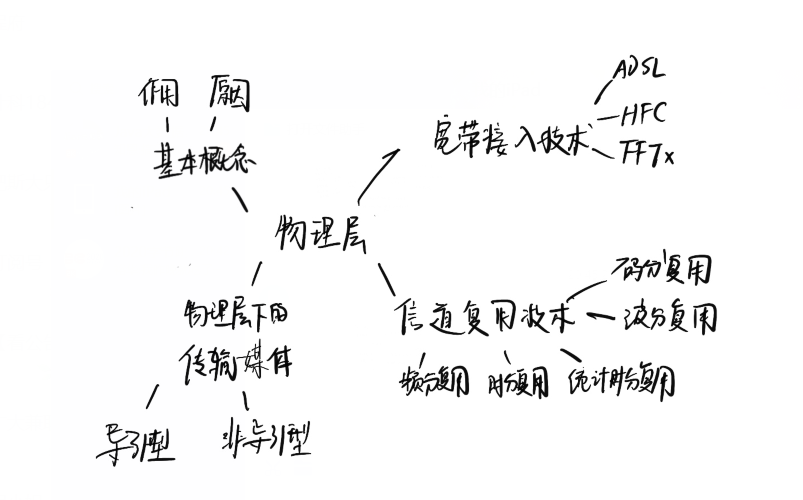 作用 原因
基本概念
物理层
宽带接入技术
ADSL
HFC
FFTx
信道复用技术
码分复用
波分复用
频分复用 时分复用 统计时分复用
物理层下的
传输媒体
导引型 非导引型